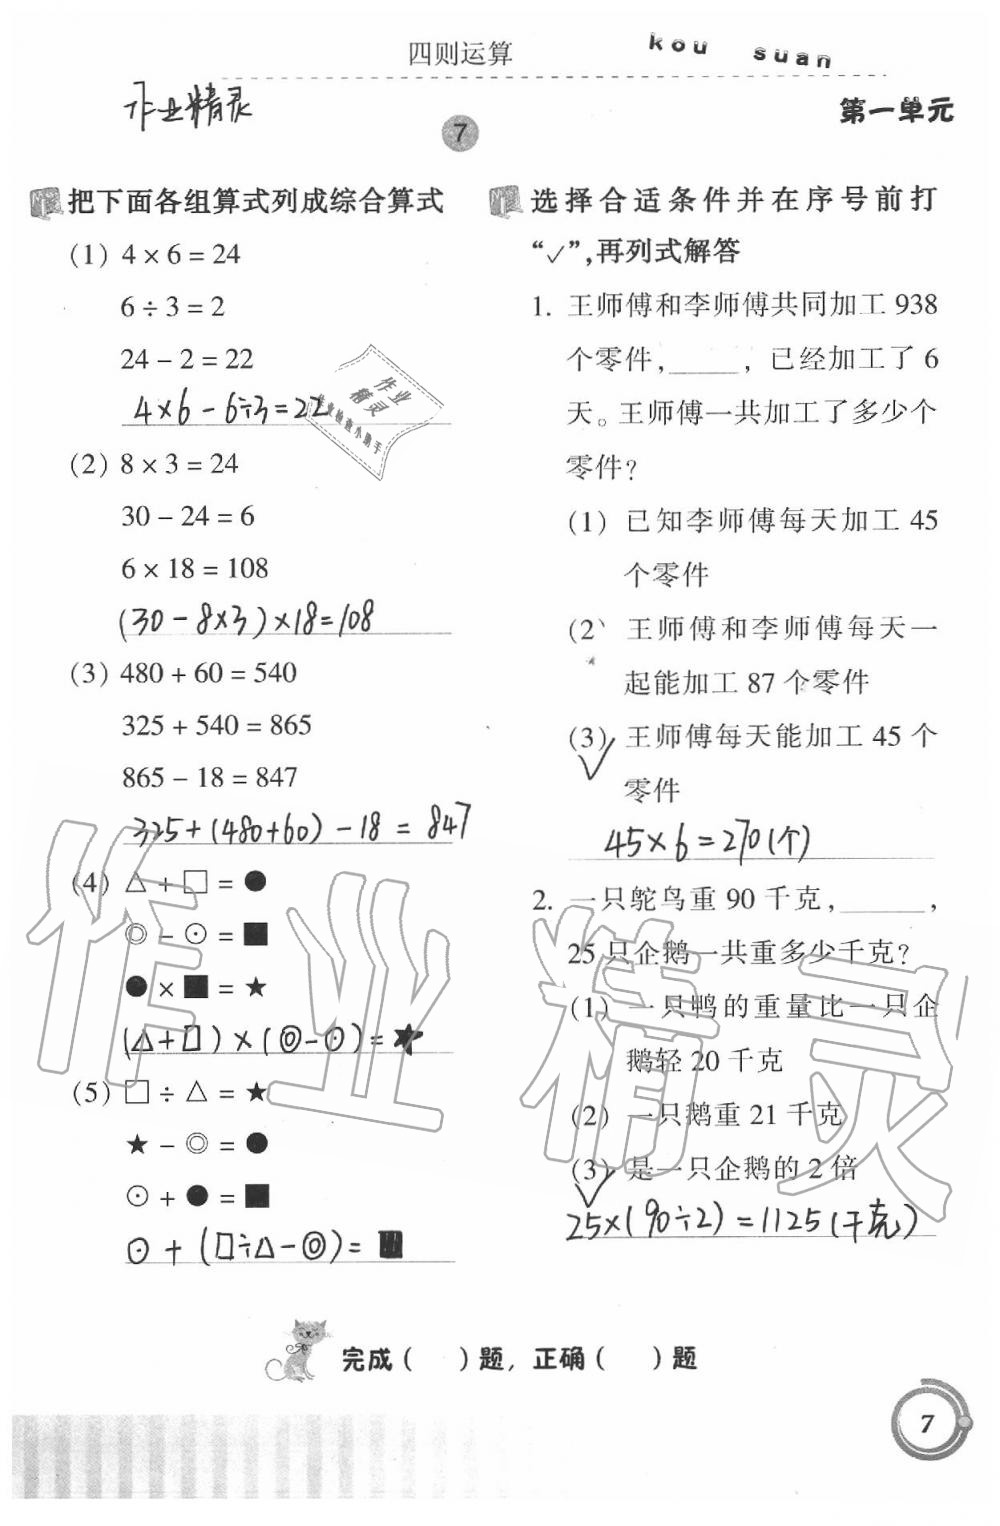 四则运算
kou suan
作业精灵
第一单元
7
把下面各组算式列成综合算式
(1) 4 × 6 = 24
6 ÷ 3 = 2
24 − 2 = 22
4×6 − 6÷3 = 22
作业
精灵
作业检查小助手
(2) 8 × 3 = 24
30 − 24 = 6
6 × 18 = 108
(30 − 8×3) ×18 = 108
(3) 480 + 60 = 540
325 + 540 = 865
865 − 18 = 847
325+(480+60) − 18 = 847
(4) △ + □ = ●
◎ − ⊙ = ■
● × ■ = ★
(△+□) × (◎−⊙) = ★
(5) □ ÷ △ = ★
★ − ◎ = ●
⊙ + ● = ■
⊙ + (□÷△−◎) = ■
选择合适条件并在序号前打
“✓”,再列式解答
1. 王师傅和李师傅共同加工 938
个零件,_____, 已经加工了 6
天。王师傅一共加工了多少个
零件?
(1) 已知李师傅每天加工 45
个零件
(2) 王师傅和李师傅每天一
起能加工 87 个零件
(3) 王师傅每天能加工 45 个
零件
✓
45×6 = 270(个)
2. 一只鸵鸟重 90 千克,______,
25 只企鹅一共重多少千克?
(1) 一只鸭的重量比一只企
鹅轻 20 千克
(2) 一只鹅重 21 千克
(3) 是一只企鹅的 2 倍
✓
25×(90÷2) = 1125(千克)
作业精灵
完成( )题, 正确( )题
7